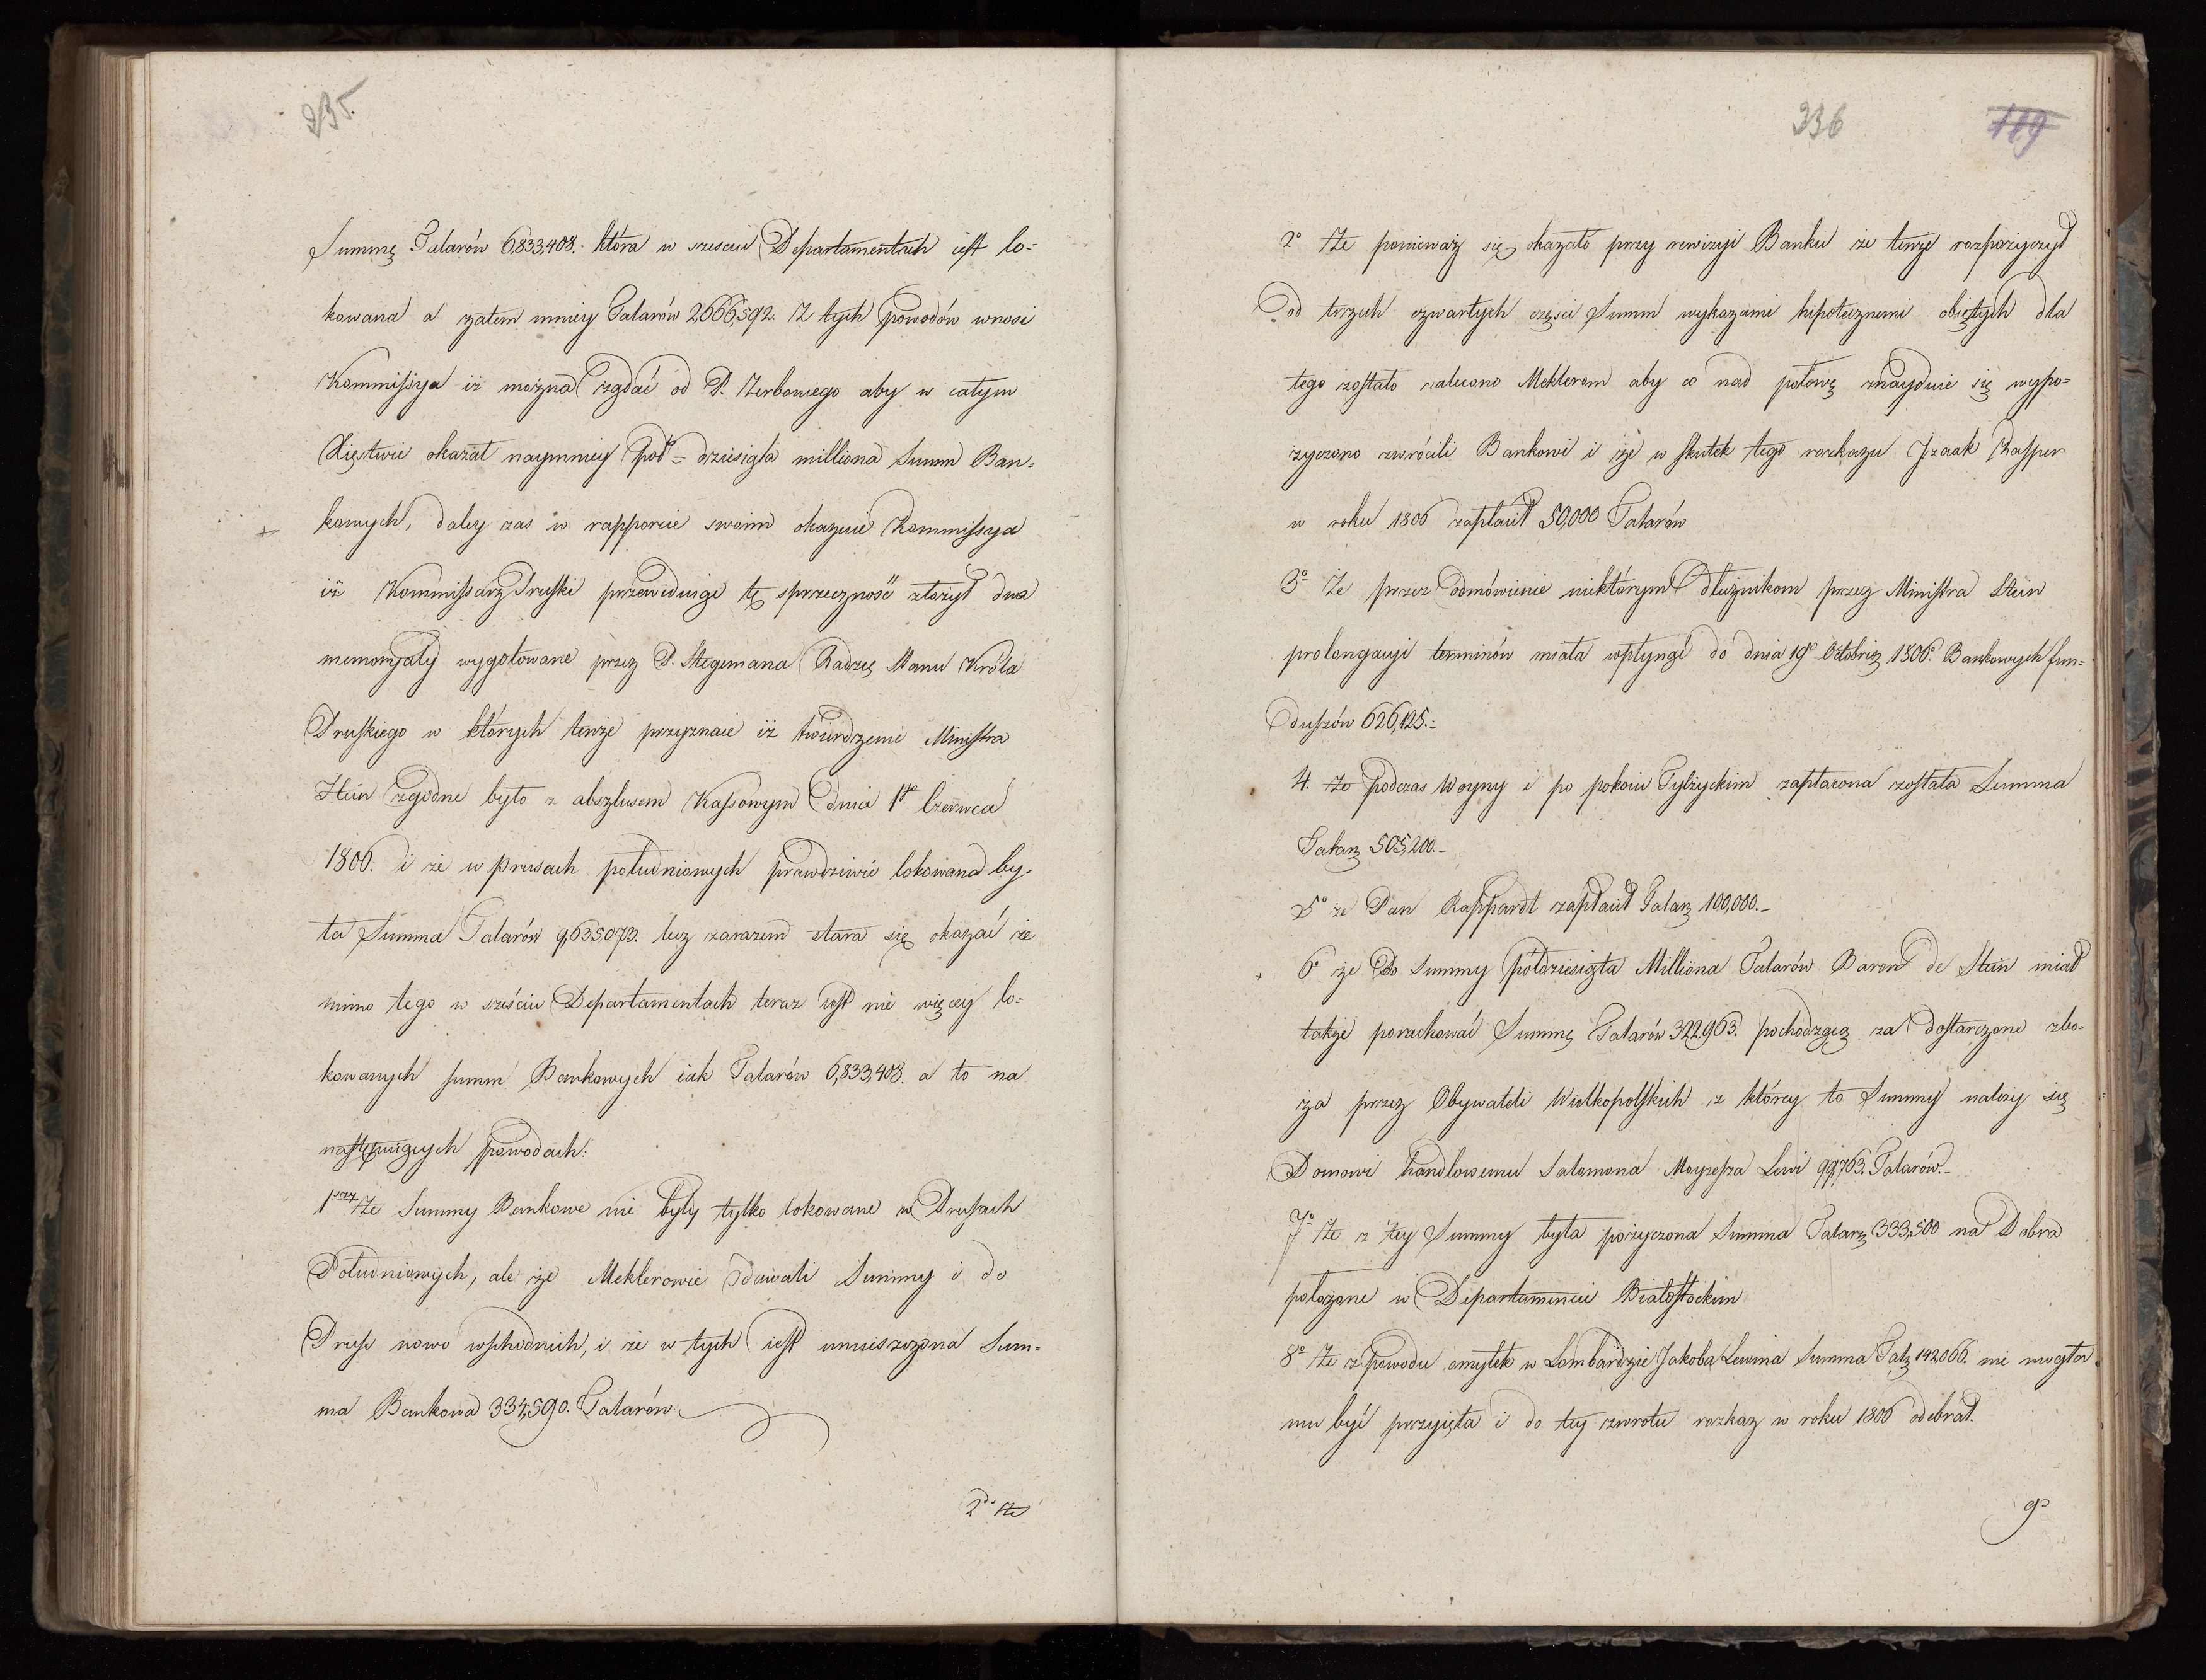 235.
Summę Talarów 6,833,408. która w sześciu Departamentach iest lo=
kowana a zatem mniey Talarów 2,666,592. Z tych powodów wnosi
Kommissya iż można żądać od P. Zerboniego aby w całym
Xięstwie okazał naymniey pół=dziesiąta milliona Summ Ban=
kowych, daley zas w rapporcie swoim okazuie Kommissya
iż Kommissarz Pruski przewiduiąc tę sprzeczność złożył dwa
memoryały wygotowane przez P. Stegemana Radzcę Stanu Króla
Pruskiego w których tenże przyznaie iż twierdzenie Ministra
Stein zgodne było z abszlusem Kassowym dnia 1go Czerwca
1806. i że w Prusach południowych prawdziwie lokowana by=
ła Summa Talarów 9,635,073. lecz zarazem stara się okazać że
mimo tego w sześciu Departamentach teraz iest nie więcey lo=
kowanych summ Bankowych iak Talarów 6,833,408. a to na
następuiących powodach:
1szy Ze Summy Bankowe nie były tylko lokowane w Prusach
Południowych, ale że Meklerowie dawali Summy i do
Prus nowo wschodnich, i że w tych iest umieszczona Sum=
ma Bankowa 334,590. Talarów
2do Ze
236 119
2o Ze ponieważ się okazało przy rewizyi Banku że tenże rozpożyczył
od trzech czwartych części Summ wykazami hipotecznemi obiętych dla
tego zostało zalecono Meklerom aby co nad połowę znayduie się wypo=
życzono zwrócili Bankowi i że w skutek tego rozkazu Izaak Kasper
w roku 1806 zapłacił 50,000 Talarów
3o Ze przez odmówienie niektórym dłużnikom przez Ministra Stein
prolongacyi terminów miała wpłynąć do dnia 19o Octobris 1806. Bankowych fun=
duszów 626,125.=
4. Ze podczas Woyny i po pokoiu Tylżyckim zapłacona została Summa
Talarz 505,200.–
5o że Pan Rappardt zapłacił Talarz 100,000.–
6o że do Summy półdziesiąta Milliona Talarów Baron de Stein miał
także porachować Summę Talarów 322,963. pochodzącą za dostarczone zbo=
ża przez Obywateli Wielkopolskich z którey to Summy należy się
Domowi handlowemu Salomona Moyzesza Lewi 99,763. Talarów.–
7o Ze z tey Summy była pożyczona Summa Talarz 333,500 na Dobra
położone w Departamencie Białostockim
8o Ze z powodu omyłek w Lombardzie Jakoba Lewina Summa Talz 192,066. nie mogła
mu być przyięta i do tey zwrotu rozkaz w roku 1806 odebrał.
9o